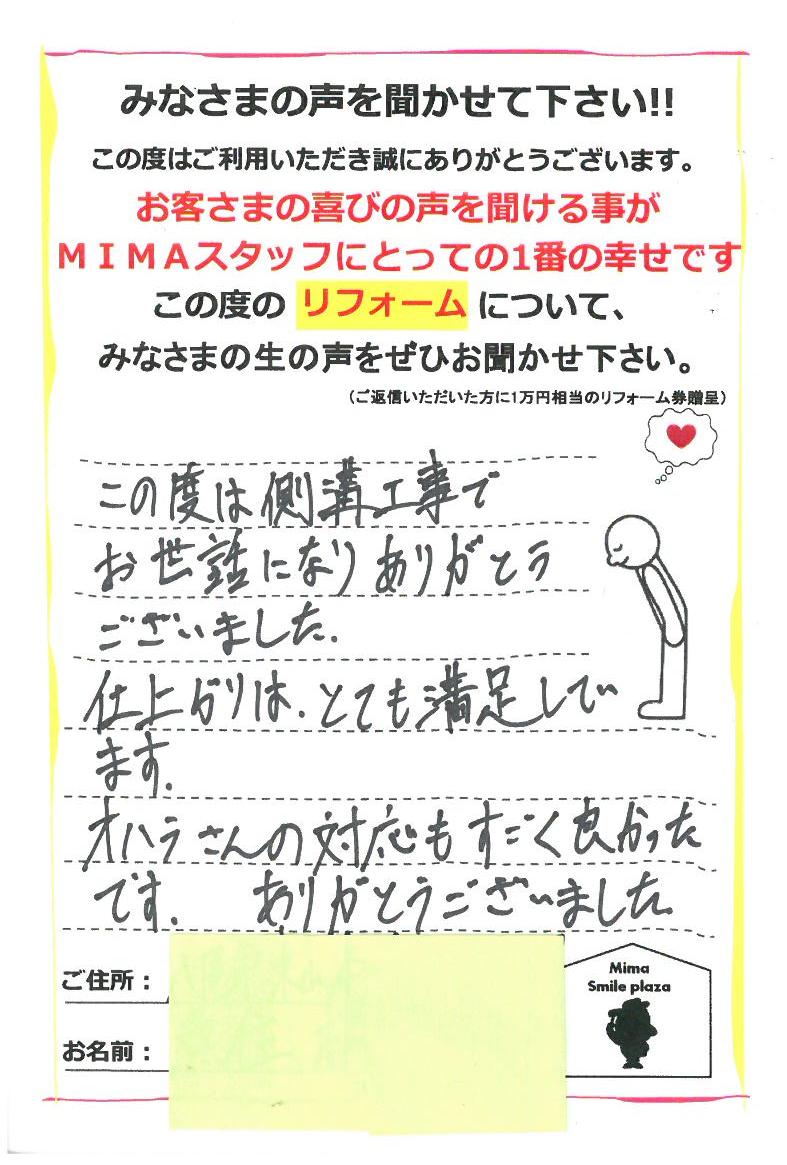 みなさまの声を聞かせて下さい!!
この度はご利用いただき誠にありがとうございます。
お客さまの喜びの声を聞ける事が
ＭＩＭＡスタッフにとっての1番の幸せです
この度の リフォーム について、
みなさまの生の声をぜひお聞かせ下さい。
（ご返信いただいた方に1万円相当のリフォーム券贈呈）
この度は側溝工事で
お世話になりありがとう
ございました.
仕上がりは、とても満足してい
ます.
オハラさんの対応もすごく良かった
です. ありがとうございました.
ご住所：
お名前：
Mima
Smile plaza